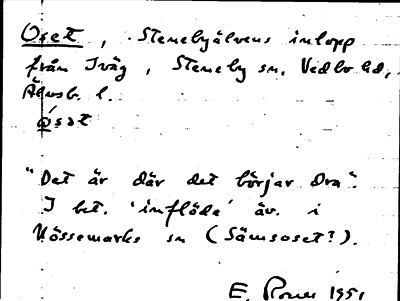 Oset, Stenebyälvens inlopp
från Iväg, Steneby sn, Vedbo hd,
Älvsb. l.
ósət
"Det är där det börjar dra".
I bet. 'inflöde' äv. i
Nössemarks sn (Sämsoset?).
E. 1951